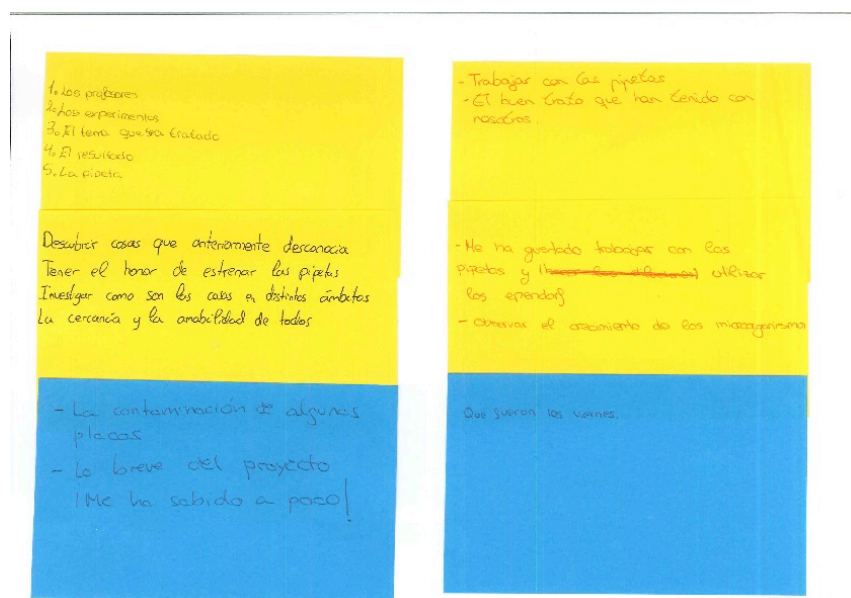 1. Los profesores
2. Los experimentos
3. El tema que se a tratado
4. El resultado
5. La pipeta
Descubrir cosas que anteriormente desconocia
Tener el honor de estrenar las pipetas
Investigar como son las cosas en distintos ámbitos
La cercanía y la amabilidad de todos
- La contaminación de algunas
placas
- Lo breve del proyecto
¡Me ha sabido a poco!
- Trabajar con las pipetas
- El buen trato que han tenido con
nosotros.
- Me ha gustado trabajar con las
pipetas y utilizar
los ependorf
- Observar el crecimiento de los microorganismos
Que fueran los viernes.